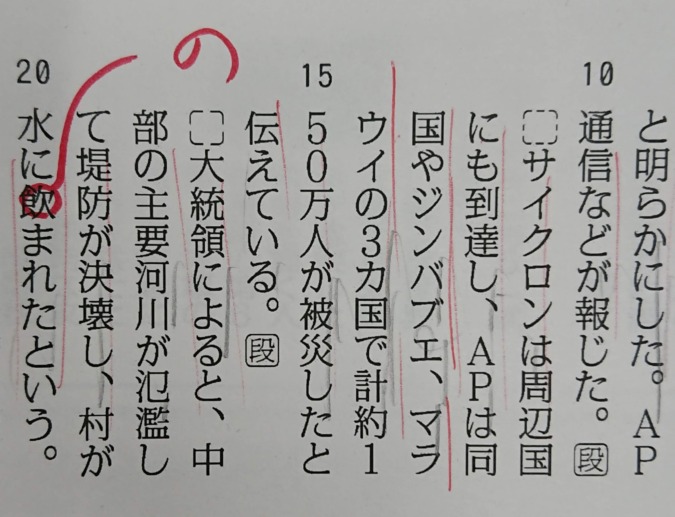 と明らかにした。AP
10
通信などが報じた。段
サイクロンは周辺国
にも到達し、APは同
国やジンバブエ、マラ
ウイの3カ国で計約1
15
50万人が被災したと
伝えている。段
大統領によると、中
部の主要河川が氾濫し
て堤防が決壊し、村が
20
水に飲まれたという。
の